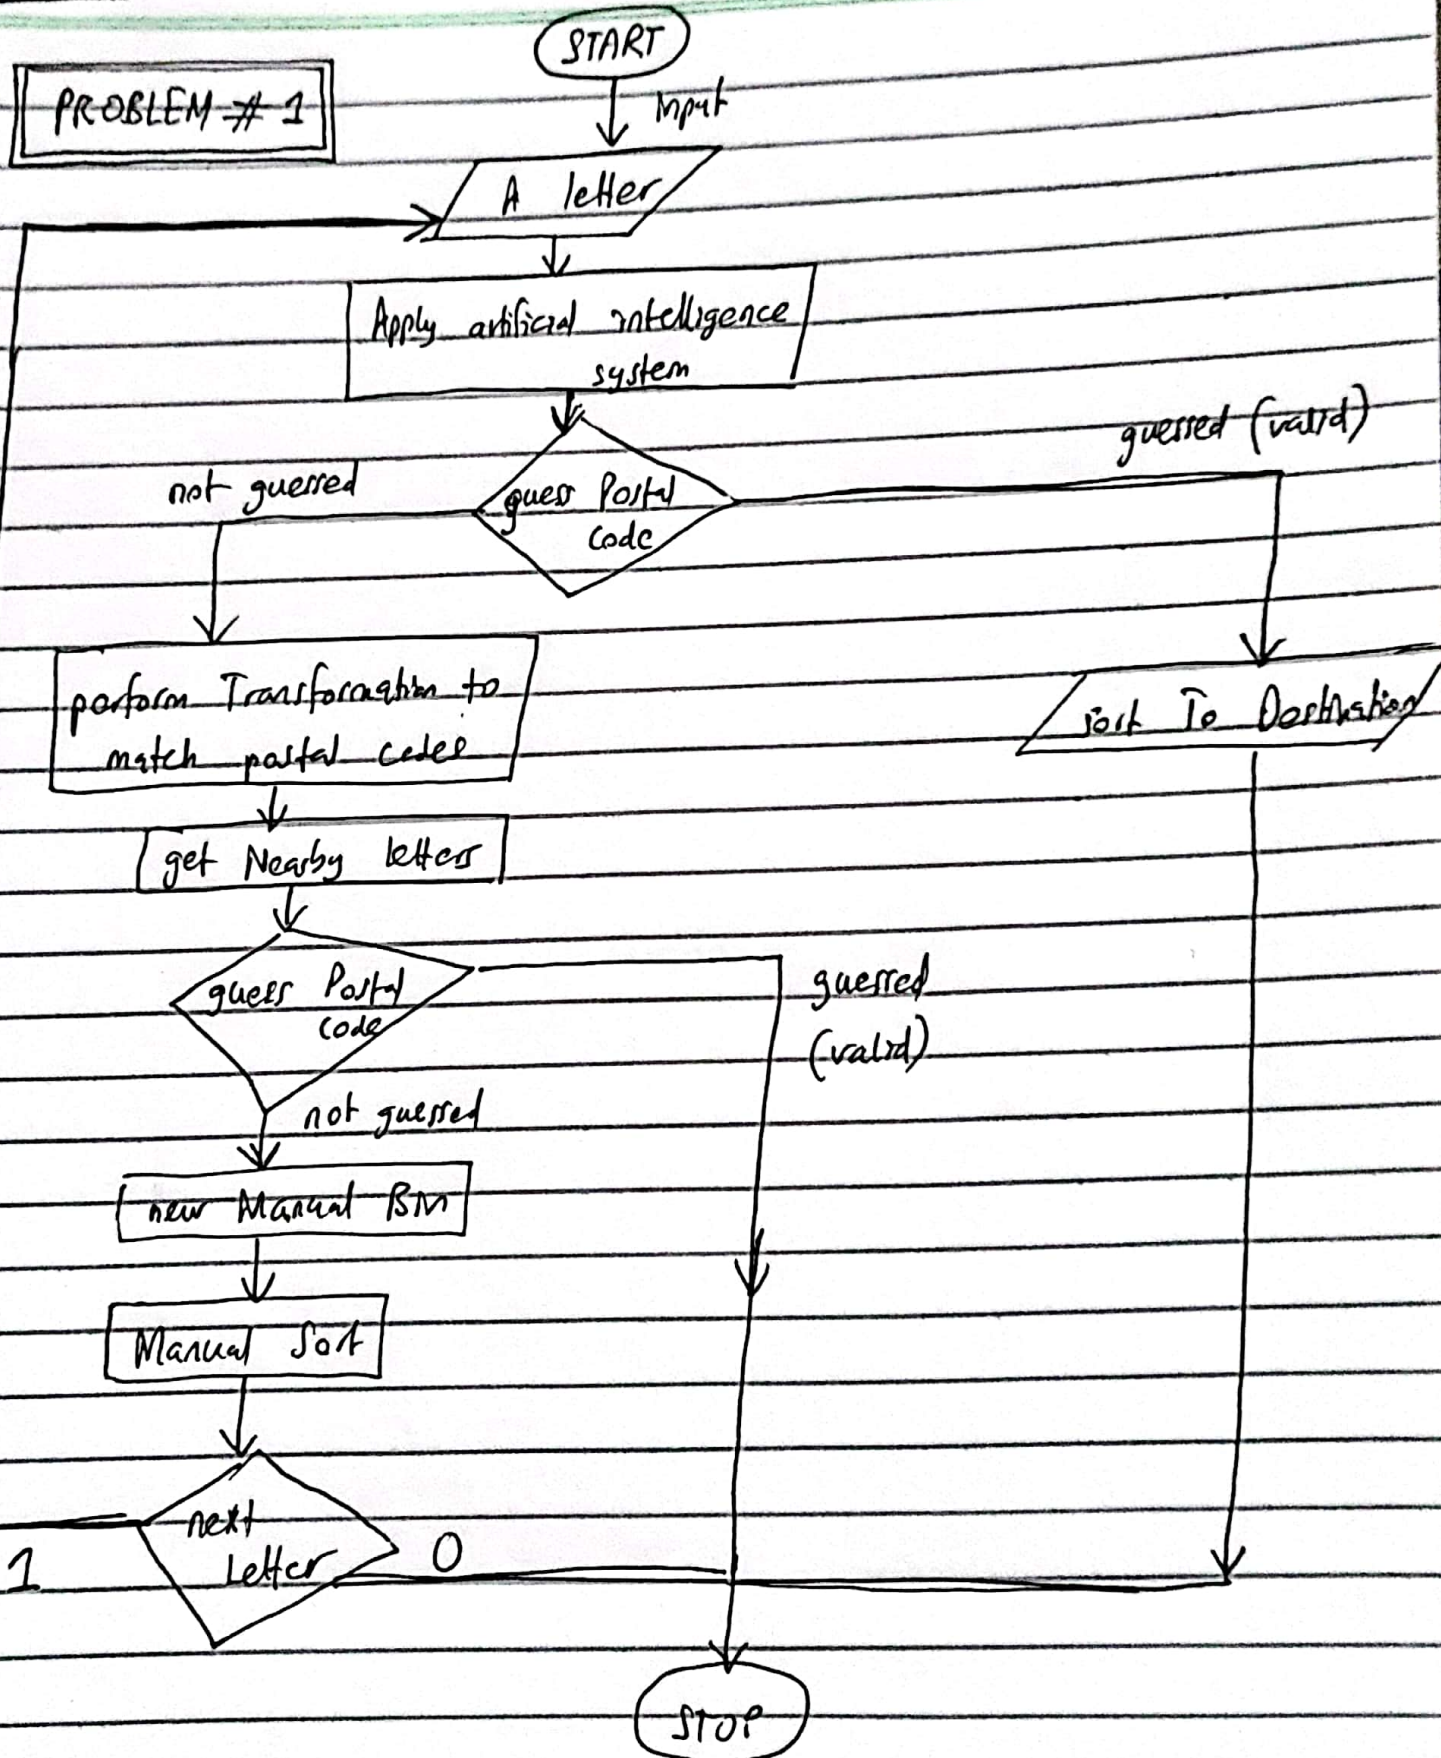 START
PROBLEM # 1
Input
A letter
Apply artificial intelligence
system
guessed (valid)
not guessed
guess Postal
code
perform Transformation to
match postal codes
sort To Destination
get Nearby letters
guess Postal
code
guessed
(valid)
not guessed
new Manual Bin
Manual Sort
next
Letter
0
1
STOP